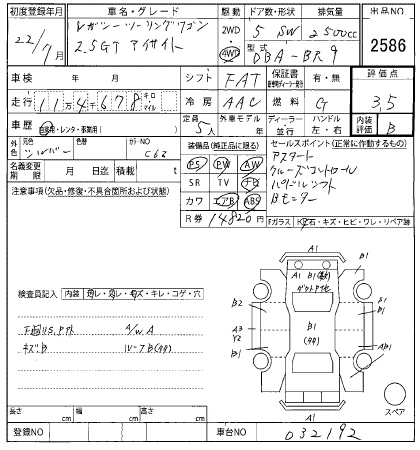 初度登録年月 車名・グレード 駆動 ドア数・形状 排気量 出品NO
22/7月 レガシーツーリングワゴン 2WD 4WD 5 SW 2500cc 2586
2.5GT アイサイト 型式 DBA-BR9
車検 年 月 シフト FAT 保証書 有・無 評価点
走行 11万4千678 キロ マイル 冷房 AAC 燃料 G 3.5
車歴 自家用・レンタ・事業用( ) 定員 5人 外車モデル 年 ディーラー 並行 ハンドル 左・右 内装評価 B
外色 元色 シルバー 色替 カラーNO C6Z 装備品(純正品に限る) セールスポイント(正常に作動するもの)
名義変更期限 月 日迄 積載 t PS PW AW アスタート
注意事項(欠品・修復・不具合箇所および状態) SR TV ナビ クルーズコントロール
カワ エアB ABS パドルシフト
R券 14820円 Bモニター
Fガラス 石・キズ・ヒビ・ワレ・リペア跡
A1
A1 B1
B1
検査員記入 内装 ヨゴレ・スレ・キズ・キレ・コゲ・穴
B2 B1
下廻US.Pサト A/W.A A3 Y2 B1
キズB ルーフB B1 AB1
A1
スペア
長さ cm 幅 cm 高さ cm
登録NO 車台NO 032192